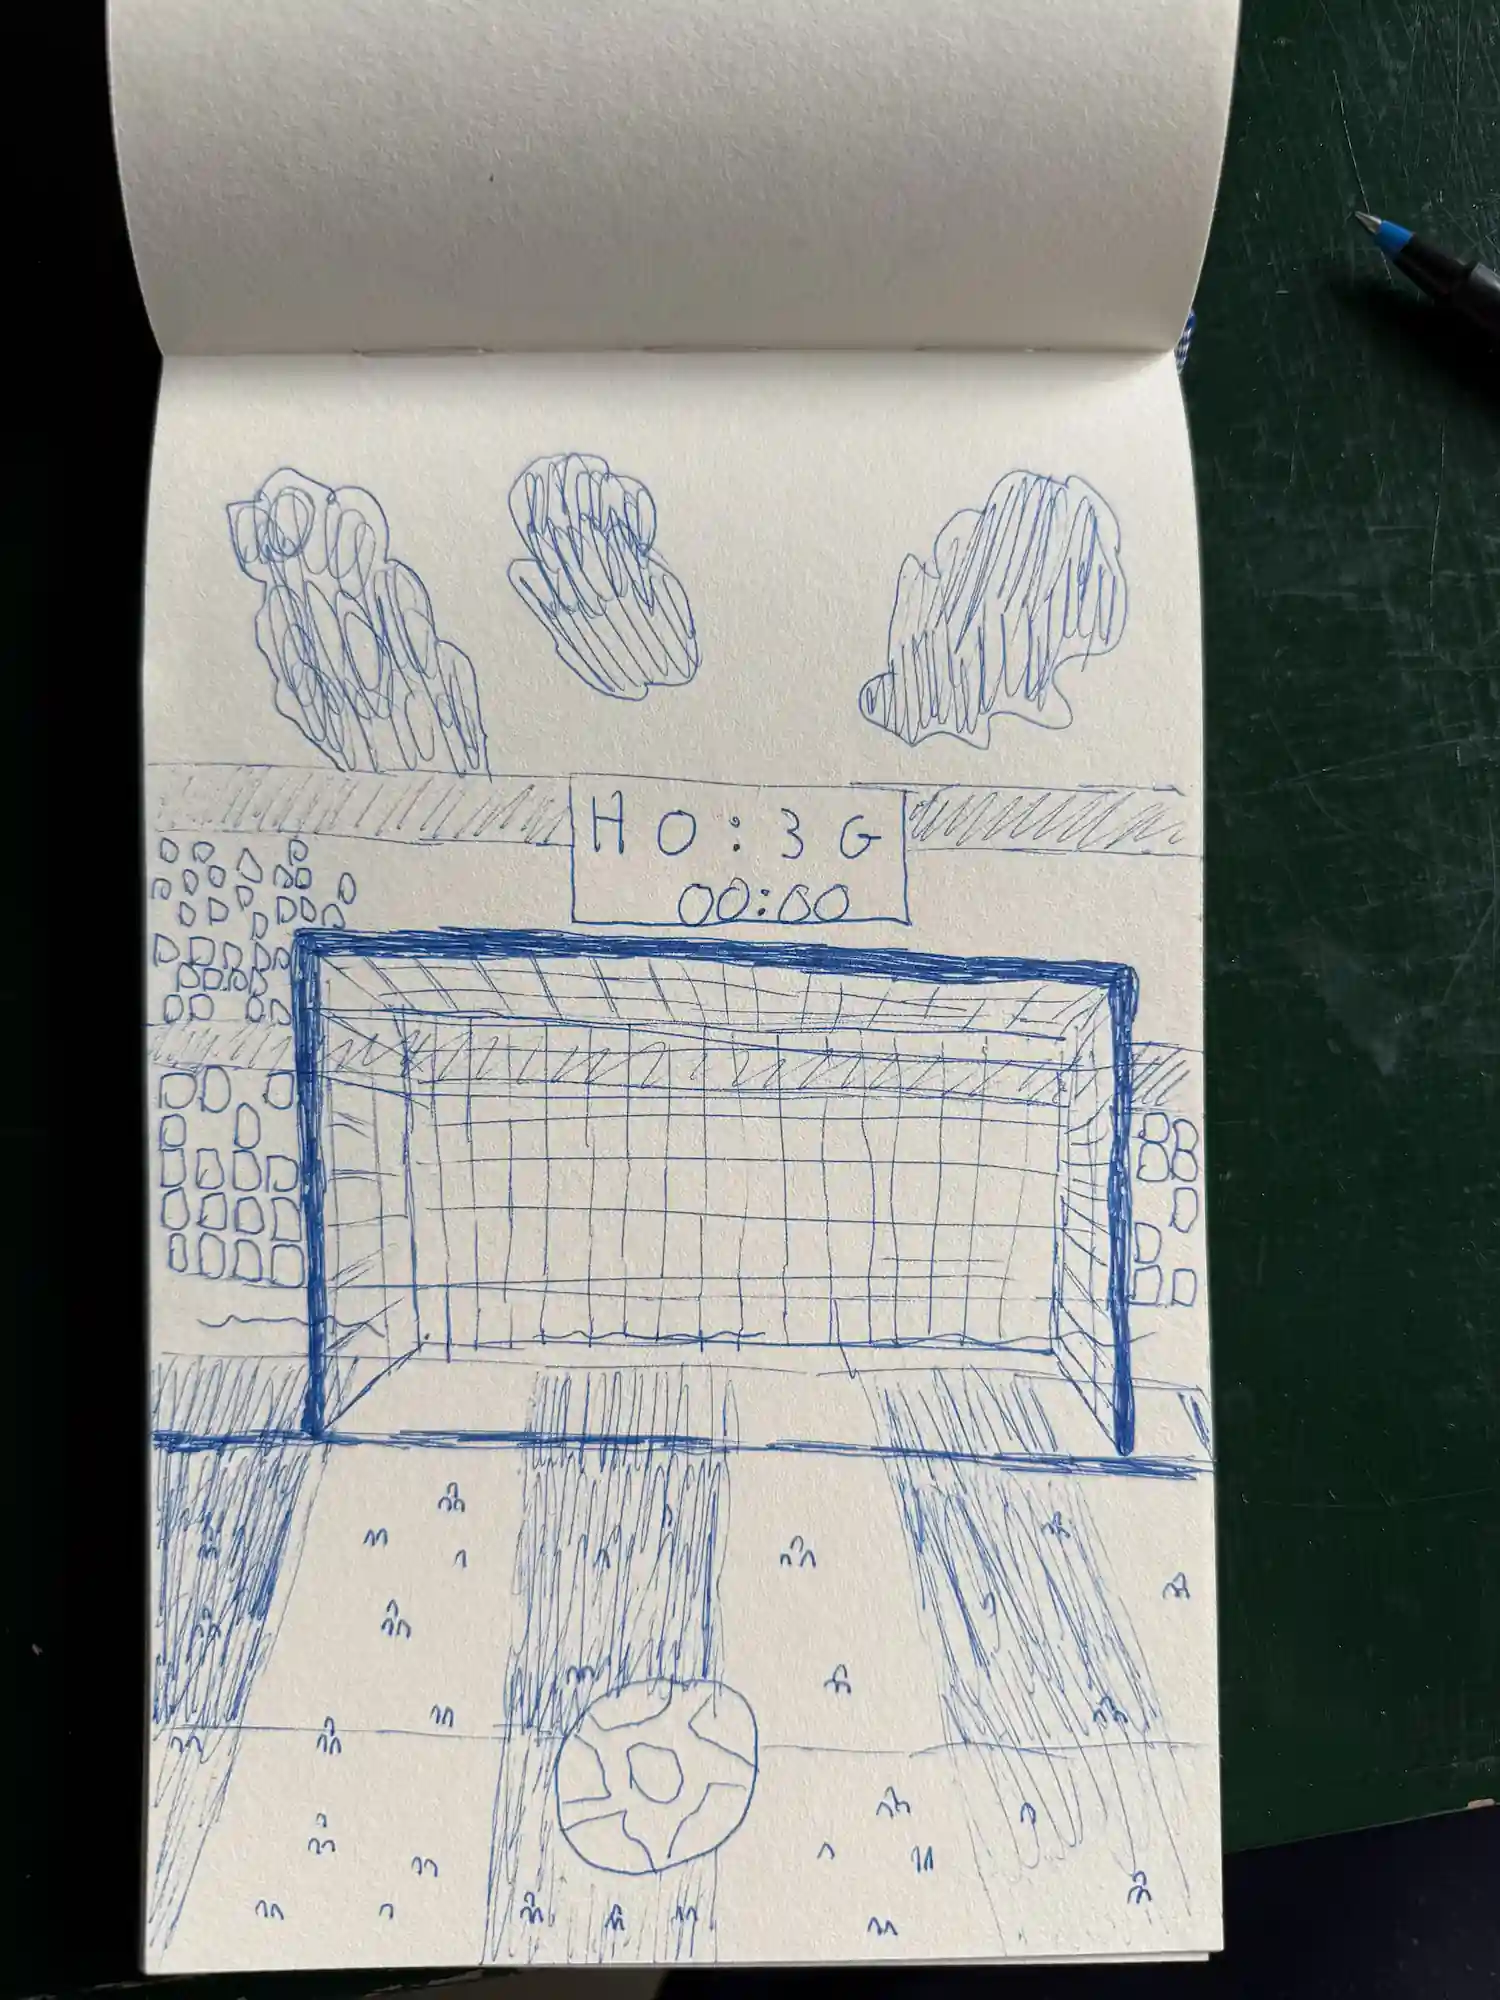 H 0 : 3 G
00:00